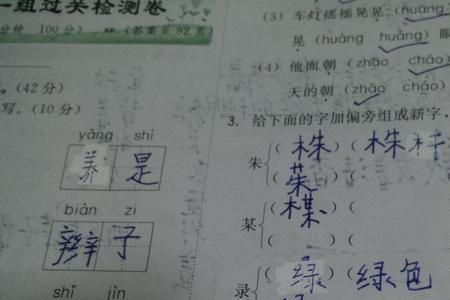 一组过关检测卷
分钟 100分) (答案见92页
。(42分)
写。(10分)
yǎng shì
养 是
biàn zi
辫 子
shǐ jìn
(3) 车灯摇摇晃晃 (huǎng
晃 (huàng huǎng) 眼
(4) 他面朝 (zhāo cháo)
天的朝 (zhāo cháo)
3. 给下面的字加偏旁组成新字,
朱 ( 株 ) ( 株杆
( 茱
某 ( 楳 ) (
( ) (
录 ( 绿 ) ( 绿色